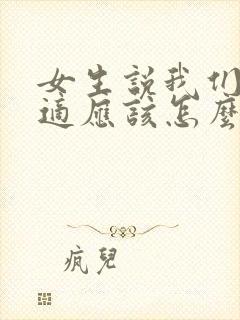 女生說我们
適應該怎麼
疯兒